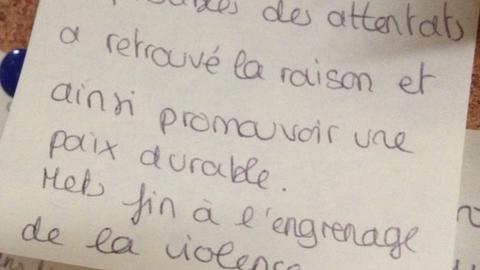 des attentats
a retrouvé la raison et
ainsi promouvoir une
paix durable.
Mets fin à l'engrenage
de la violence